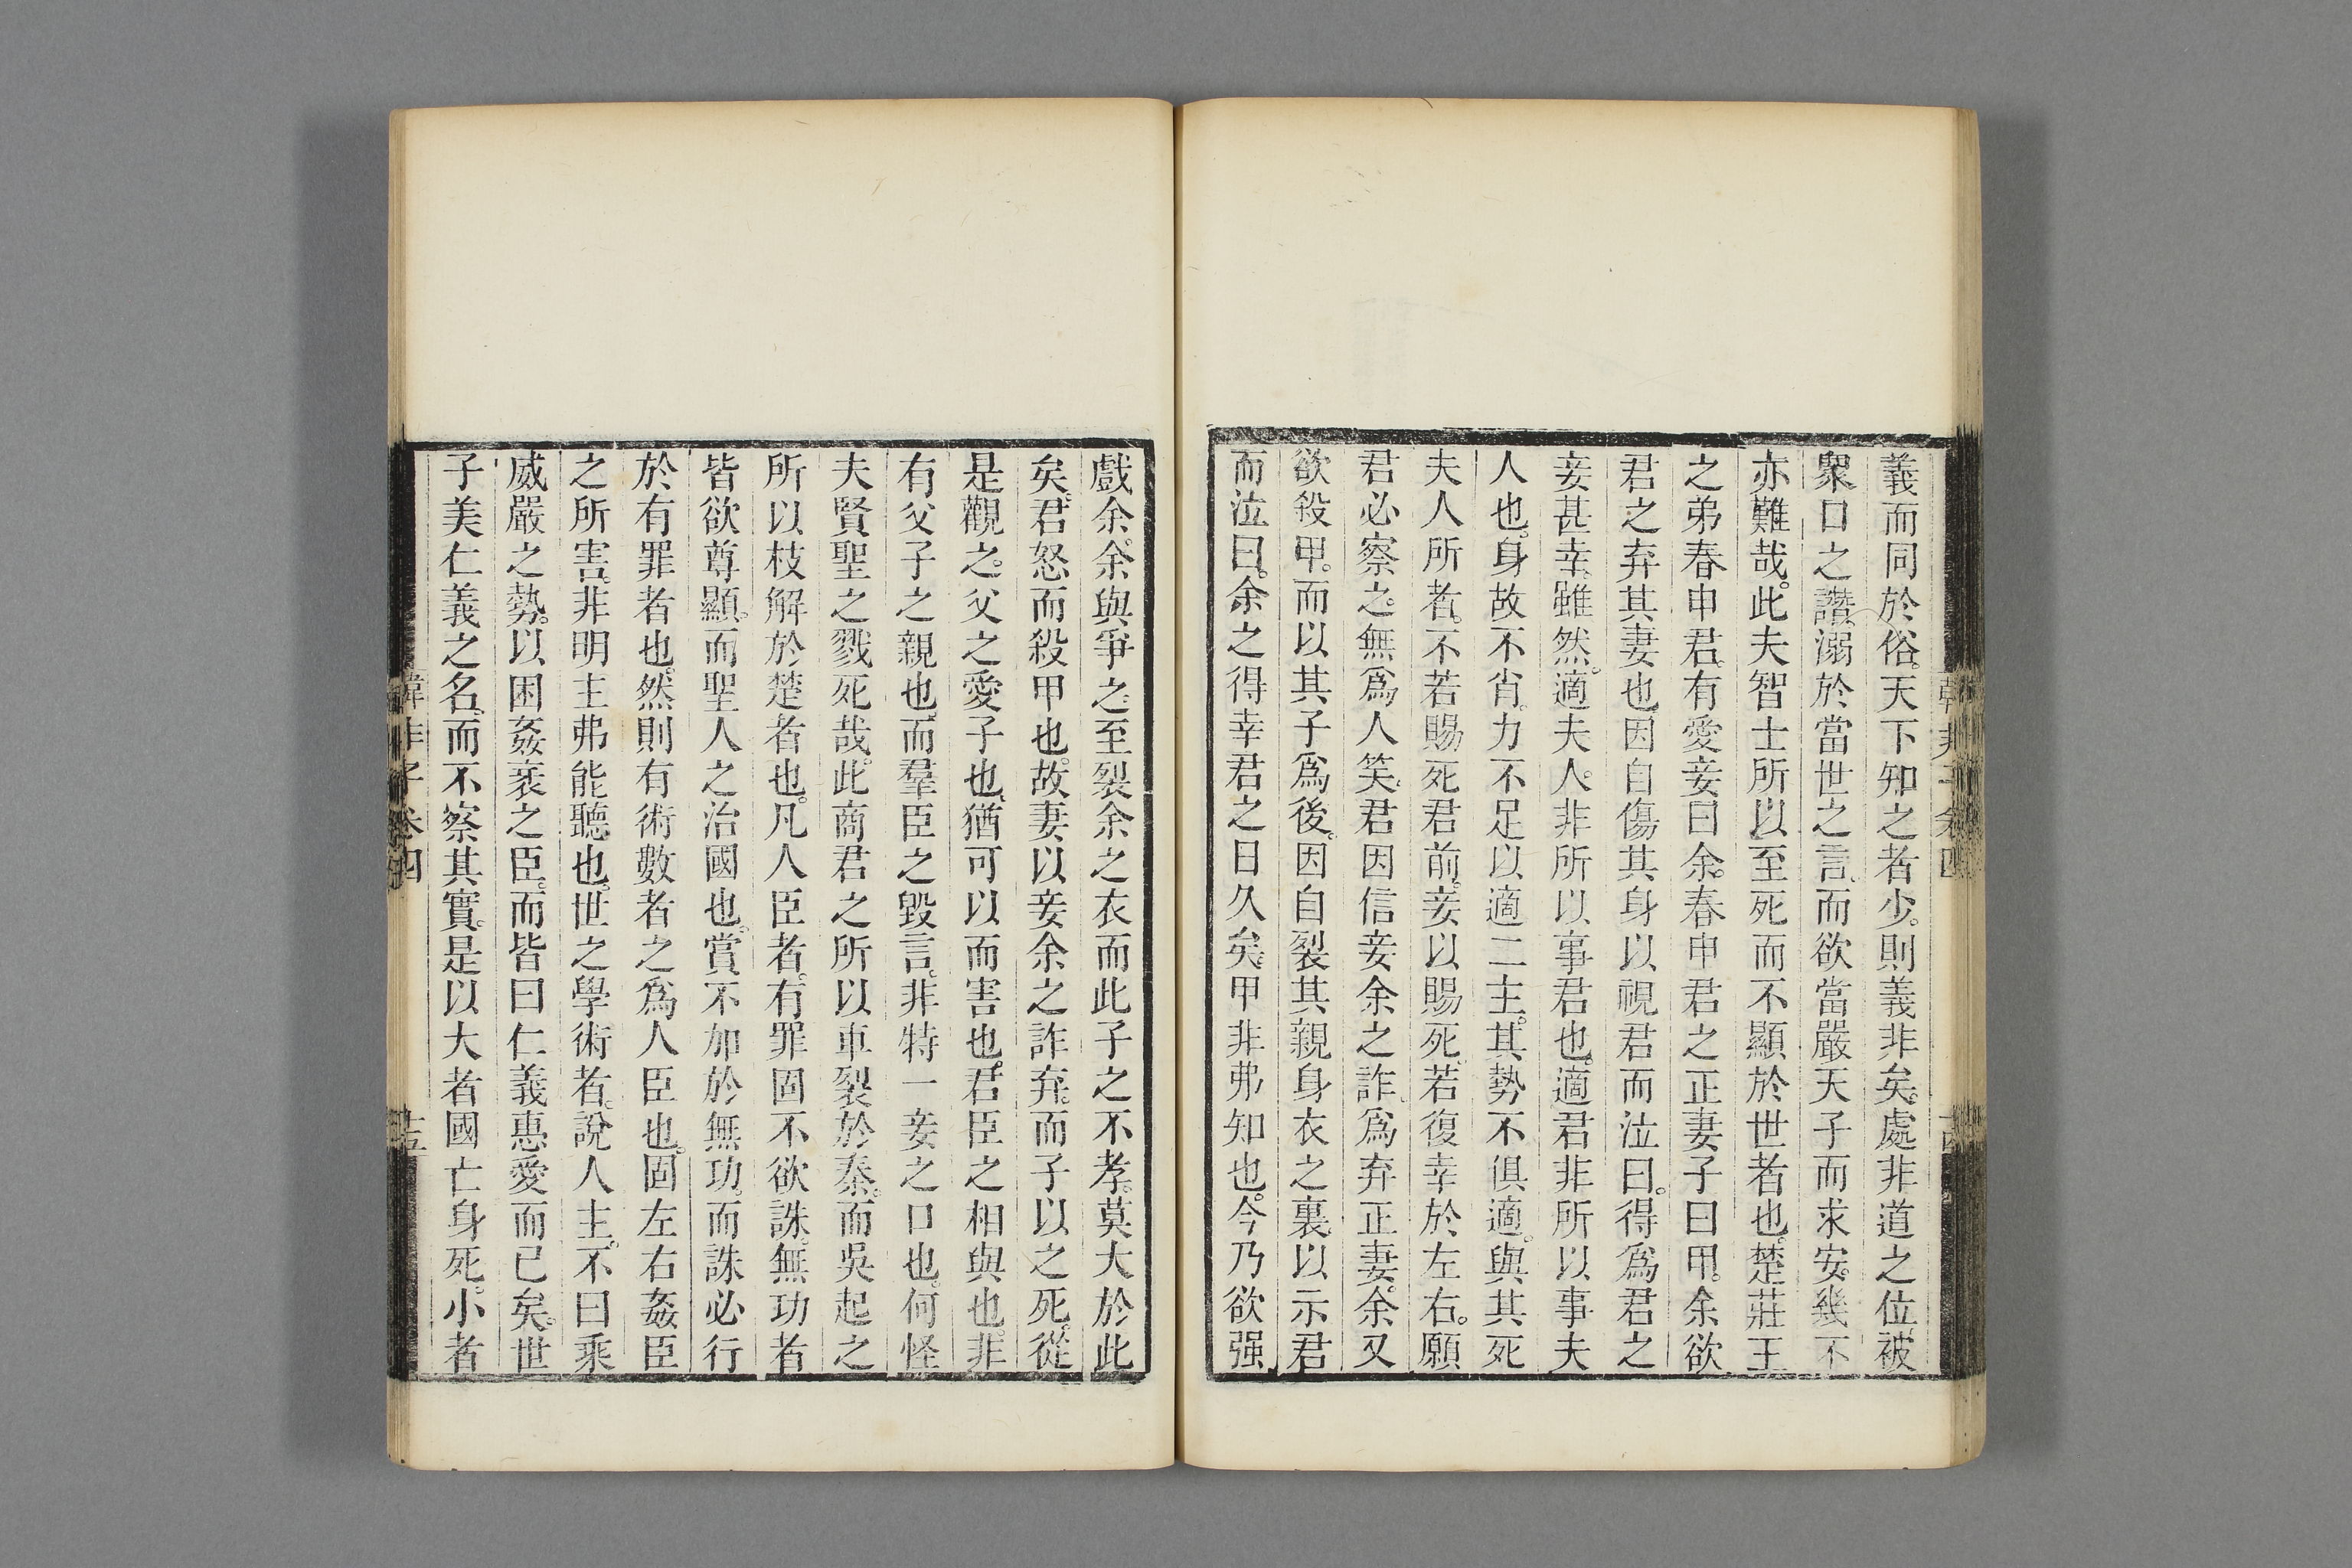 義而同於俗。天下知之者少。則義非矣。處非道之位。被
衆口之譖。溺於當世之言。而欲當嚴天子而求安。幾不
亦難哉。此夫智士所以至死而不顯於世者也。楚莊王
之弟春申君。有愛妾曰余。春申君之正妻子曰甲。余欲
君之弃其妻也。因自傷其身以視君而泣曰。得爲君之
妾甚幸。雖然。適夫人。非所以事君也。適君非所以事夫
人也。身故不肖。力不足以適二主。其勢不俱適。與其死
夫人所者。不若賜死君前。妾以賜死。若復幸於左右。願
君必察之。無爲人笑。君因信妾余之詐。爲弃正妻。余又
欲殺甲。而以其子爲後。因自裂其親身衣之裏。以示君
而泣曰。余之得幸君之日久矣。甲非弗知也。今乃欲强
戲余。余與爭之。至裂余之衣。而此子之不孝。莫大於此
矣。君怒而殺甲也。故妻以妾余之詐弃。而子以之死。從
是觀之。父之愛子也。猶可以而害也。君臣之相與也。非
有父子之親也。而羣臣之毀言。非特一妾之口也。何怪
夫賢聖之戮死哉。此商君之所以車裂於秦。而吳起之
所以枝解於楚者也。凡人臣者。有罪固不欲誅。無功者
皆欲尊顯。而聖人之治國也。賞不加於無功。而誅必行
於有罪者也。然則有術數者之爲人臣也。固左右姦臣
之所害。非明主弗能聽也。世之學術者。說人主。不曰乘
威嚴之勢。以困姦衺之臣。而皆曰仁義惠愛而已矣。世
子美仁義之名。而不察其實。是以大者國亡身死。小者
韓非子卷四
十五